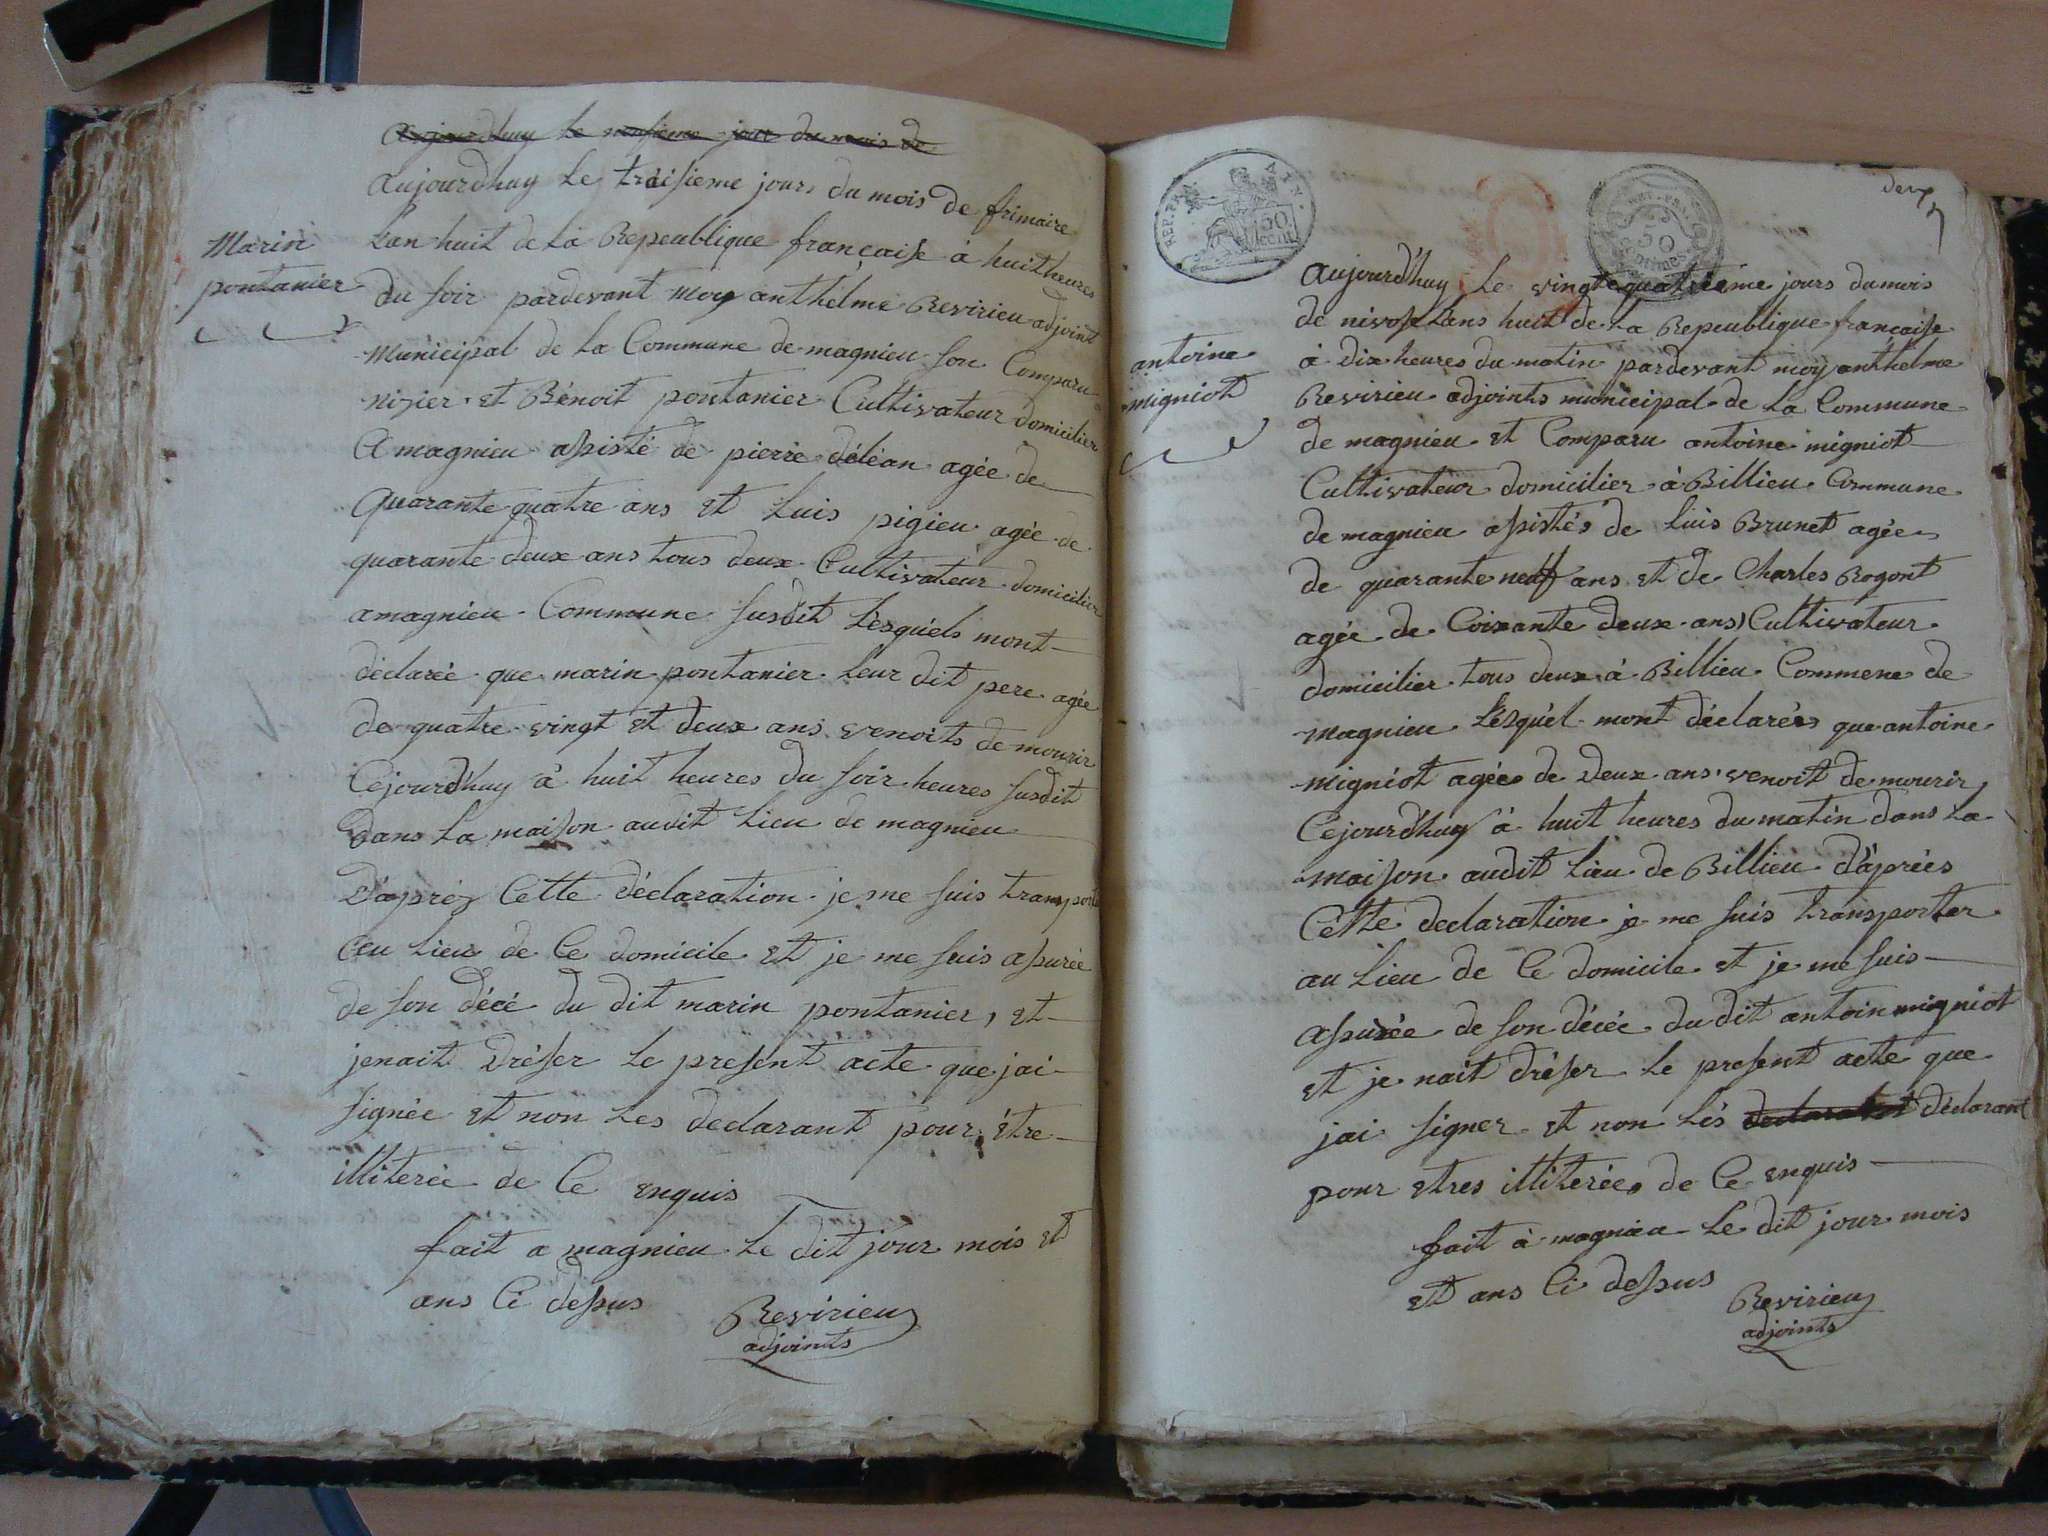 aujourdhuy le
jour du mois de
aujourdhuy le troisieme jours du mois de frimaire
Lan huit de la Republique française à huit heures
Marin
pontanier
du soir pardevant moy anthelme Revirieu adjoint
municipal de la Commune de magnieu son Comparu
nizier et Bénoit pontanier Cultivateur domicilier
a magnieu assisté de pierre déléan agée de
quarante quatre ans et Luis pigieu agée de
quarante deux ans tous deux Cultivateur domicilier
a magnieu Commune susdit lesquels mont
déclarée que marin pontanier leur dit pere agée
de quatre vingt et deux ans venoits de mourir
Cejourdhuy à huit heures du soir heures susdit
dans la maison audit lieu de magnieu
D'aprez Cette déclaration je me suis transporté
au lieu de Ce domicile et je me suis assurée
de son décé du dit marin pontanier, et
jenait dréser le present acte que jai
signée et non les declarant pour être
illiterée de Ce enquis
fait a magnieu le dit jour mois et
ans Ci dessus
Revirieu
adjoints
REP. FRA
50
cent
50
centimes
deux
aujourd'huy le vingt quatrieme jours du mois
de nivose Lans huit de la Republique française
antoine
migniot
à dix heures du matin pardevant moy anthelme
Revirieu adjoints municipal de la Commune
de magnieu et Comparu antoine migniot
Cultivateur domicilier à Billieu Commune
de magnieu assistés de Luis Brunet agée
de quarante neuf ans et de Charles Rogont
agée de Coixante deux ans Cultivateur
domicilier tous deux à Billieu Commene de
magnieu Lesquel mont déclarées que antoine
migniot agée de Deux ans venoit de mourir
Cejourd'huy à huit heures du matin dans la
maison audit lieu de Billieu d'aprées
Cette declaration je me suis transporter
au lieu de Ce domicile et je me suis
assurée de son décée du dit antoin migniot
et je nait dréser le present acte que
jai signer et non lés declarant déclarant
pour etres illiterée de Ce enquis
fait à magnieu le dit jour mois
et ans Ci dessus
Revirieu
adjoints